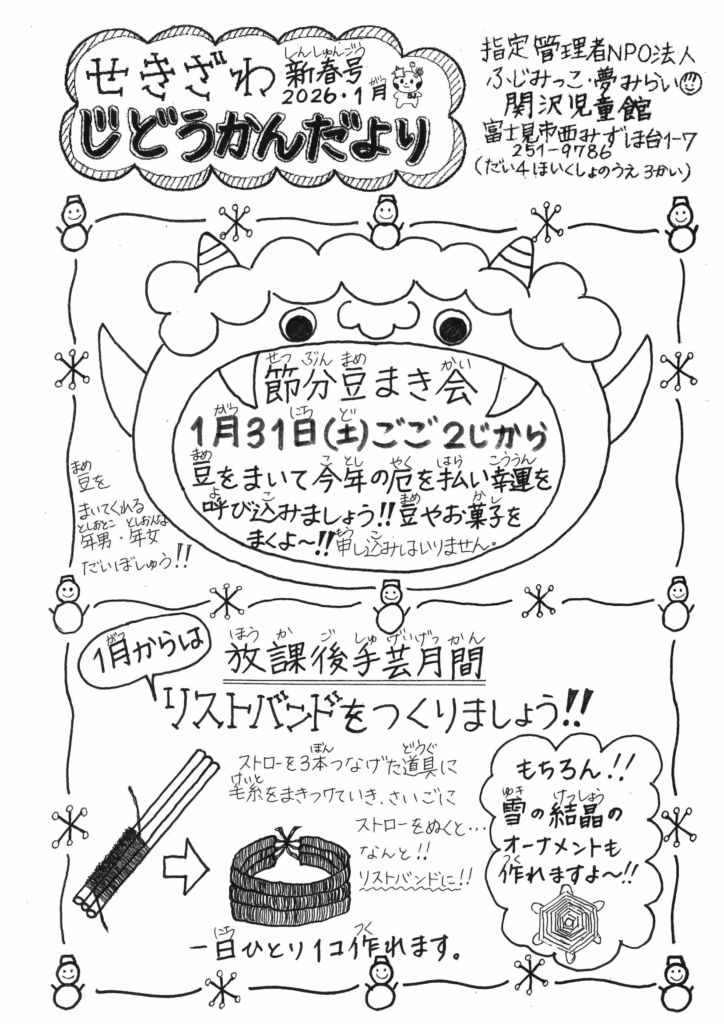 せきざわ
新春号
しんしゅんごう
2026.1月
がつ
じどうかんだより
指定管理者NPO法人
ふじみっこ・夢みらい
関沢児童館
富士見市西みずほ台1-7
251-9786
(だい4ほいくしょのうえ3かい)
せつぶんまめ かい
節分豆まき会
がつ にち ど
1月31日(土)ごご2じから
まめ ことし やく はら こううん
豆をまいて今年の厄を払い幸運を
よ こ まめ かし
呼び込みましょう!!豆やお菓子を
もう こ
まくよ~!!申し込みはいりません。
まめ
豆を
まいてくれる
としおとこ としおんな
年男・年女
だいぼしゅう!!
がつ
1月からは
ほうかごしゅげいげっかん
放課後手芸月間
リストバンドをつくりましょう!!
ぼん どうぐ
ストローを3本つなげた道具に
けいと
毛糸をまきつけていき、さいごに
ストローをぬくと…
なんと!!
リストバンドに!!
もちろん!!
ゆき けっしょう
雪の結晶の
オーナメントも
つく
作れますよ~!!
にち つく
一日ひとり1コ作れます。